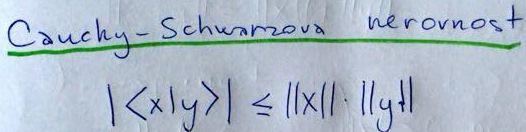 Cauchy-Schwarzova nerovnost
|<x|y>| ≤ ||x||·||y||